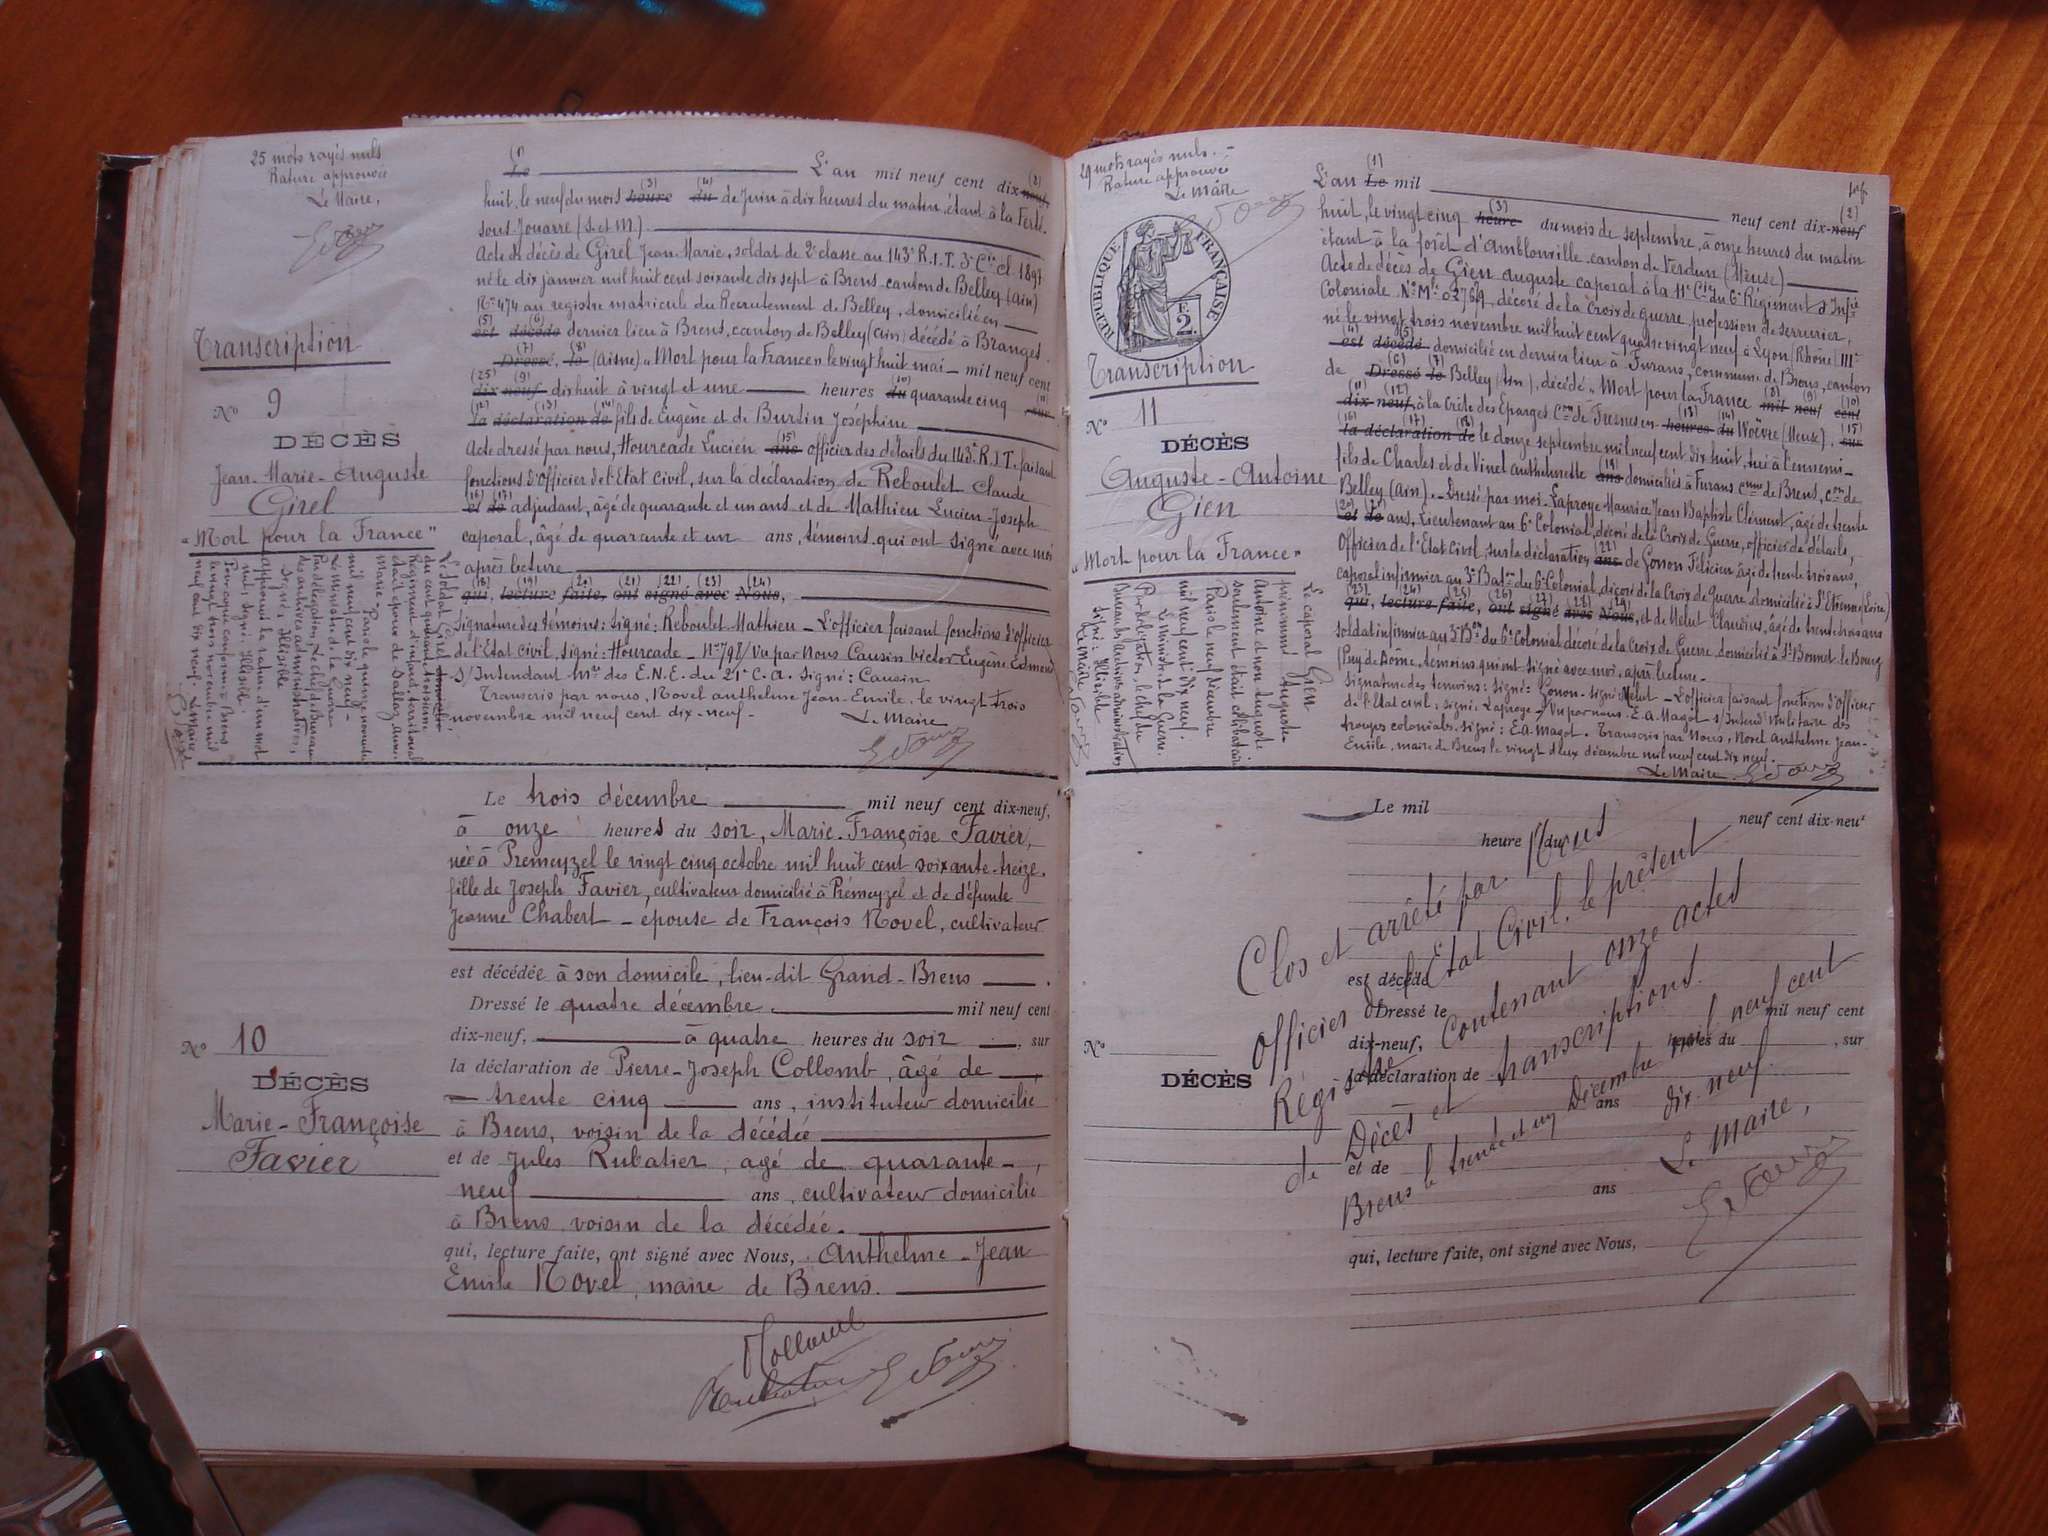 25 mots rayés nuls
Rature approuvée
Le Maire,
Transcription
N° 9
DÉCÈS
Jean-Marie-Auguste
Girel
"Mort pour la France"
(1)
Le L'an mil neuf cent dix-neuf (2)
huit, le neuf du mois heure (3) du (4) de Juin à dix heures du matin, étant à la Ferté
sous Jouarre (S. et M.)
Acte de décès de Girel Jean-Marie, soldat de 2e classe au 143e R.I.T. 3e Cie cl. 1897
né le dix janvier mil huit cent soixante dix sept à Brens canton de Belley (Ain)
N° 474 au registre matricule du Recrutement de Belley, domicilié en
(5) (6)
est décédé dernier lieu à Brens, canton de Belley (Ain) décédé à Branges
(7) (8)
Dressé, le (Aisne) "Mort pour la France" le vingt huit mai mil neuf cent
(25) (9) (10)
dix-neuf dix huit à vingt et une heures du quarante cinq sur (11)
(12) (13) (14)
la déclaration de fils de Eugène et de Burtin Joséphine
Acte dressé par nous, Hourcade Lucien ans (15) officier des détails du 143e R.I.T. faisant
fonctions d'officier de l'Etat Civil, sur la déclaration de Reboulet Claude
(16) (17)
et de adjudant, âgé de quarante et un ans et de Mathieu Lucien-Joseph
caporal, âgé de quarante et un ans, témoins qui ont signé avec moi
après lecture
(18) (19) (20) (21) (22) (23) (24)
qui, lecture faite, ont signé avec Nous,
Signature des témoins: signé: Reboulet-Mathieu - L'officier faisant fonctions d'officier
de l'État Civil, signé: Hourcade - N° 798/Vu par Nous Causin Victor Eugène Edmond
S/Intendant mre des E.N.E. du 21e C.A. signé: Causin
Transcris par nous, Novel Anthelme Jean-Emile, le vingt trois
novembre mil neuf cent dix-neuf.
Le Maire
Le soldat Girel
du cent quarante troisième
Régiment d'infant. territorial
était époux de Sallaz Anne
Marie. Paris le quinze novembre
mil neuf cent dix neuf -
Le ministre de la Guerre
Par délégation, Le chef de Bureau
des archives administratives,
Signé: Illisible
approuvé la rature d'un mot
nul, signé: Illisible.
Pour copie conforme Brens
le vingt trois novembre mil
neuf cent dix neuf. Le Maire
N° 10
DÉCÈS
Marie-Françoise
Favier
Le trois décembre mil neuf cent dix-neuf,
à onze heures du soir, Marie-Françoise Favier,
née à Prémeyzel le vingt cinq octobre mil huit cent soixante-treize.
fille de Joseph Favier, cultivateur domicilié à Prémeyzel et de défunte
Jeanne Chabert - épouse de François Novel, cultivateur
est décédée à son domicile, lieu-dit Grand-Brens
Dressé le quatre décembre mil neuf cent
dix-neuf, à quatre heures du soir, sur
la déclaration de Pierre-Joseph Collomb, âgé de
trente cinq ans, instituteur domicilié
à Brens, voisin de la décédée
et de Jules Rubatier, agé de quarante-
neuf ans, cultivateur domicilié
à Brens voisin de la décédée.
qui, lecture faite, ont signé avec Nous, Anthelme-Jean
Emile Novel, maire de Brens.
29 mots rayés nuls. -
Rature approuvée
Le Maire
RÉPUBLIQUE FRANÇAISE
2
Transcription
N° 11
DÉCÈS
Auguste-Antoine
Gien
"Mort pour la France"
(1)
L'an Le mil neuf cent dix-neuf (2)
huit, le vingt cinq heure (3) du mois de septembre, à onze heures du matin
étant à la forêt d'Amblonville canton de Verdun (Meuse)
Acte de décès de Gien Auguste caporal à la 11e Cie du 6e Régiment d'Infie
Coloniale N° Mle décoré de la Croix de guerre profession de serrurier,
né le vingt trois novembre mil huit cent quatre vingt neuf à Lyon (Rhône) IIIe
(4) (5)
est décédé domicilié en dernier lieu à Furans, commune de Brens, canton
(6) (7)
de Dressé le Belley (Ain), décédé "Mort pour la France mil neuf cent (8) (9) (10)
(11) (12)
dix-neuf, à la Crête des Eparges Cne de Fresnes en heures du (13) (14) Woëvre (Meuse), sur (15)
(16) (17) (18)
la déclaration de le douze septembre mil neuf cent dix huit, tué à l'ennemi -
fils de Charles et de Vinel Anthelmette ans (19) domiciliés à Furans Cnne de Brens, Con de
Belley (Ain). - Dressé par moi Laproye Maurice Jean Baptiste Clément, âgé de trente
(20) (21)
et de ans, Lieutenant au 6e Colonial, décoré de la Croix de Guerre, officier de détails,
Officier de l'Etat Civil, sur la déclaration ans (22) de Gonon Félicien âgé de trente trois ans,
caporal infirmier au 3e Baton du 6e Colonial, décoré de la Croix de Guerre domicilié à St Etienne (Loire)
(23) (24) (25) (26) (27) (28) (29)
qui, lecture faite, ont signé avec Nous, et de Melut Claudius, âgé de trente trois ans
soldat infirmier au 3e Bon du 6e Colonial décoré de la Croix de Guerre domicilié à St Bonnet le Bourg
(Puy de Dôme, témoins qui ont signé avec moi, après lecture -
Signature des témoins: signé: Gonon - signé: Melut - L'officier faisant fonctions d'officier
de l'Etat Civil: signé: Laproye - Vu par nous E.A. Magot s/Intendt Militaire des
troupes coloniales. signé: E.A. Magot. Transcris par Nous, Novel Anthelme Jean-
Emile, maire de Brens le vingt deux décembre mil neuf cent dix neuf.
Le Maire
Le caporal Gien
prénommé Auguste
Antoine et non Auguste
seulement était célibataire
Paris le neuf décembre
mil neuf cent dix neuf.
Le Ministre de la Guerre.
Par délégation, le chef du
Bureau des archives administratives
Signé: Illisible
Le Maire
Le mil neuf cent dix-neuf
heure du
est décédé
Dressé le mil neuf cent
N° dix-neuf, heures du , sur
DÉCÈS la déclaration de
ans
et de
ans
qui, lecture faite, ont signé avec Nous,
Clos et arrêté par Nous
Officier de l'Etat Civil, le présent
Régistre contenant onze actes
de Décès et transcriptions.
Brens le trente et un Décembre mil neuf cent
dix-neuf.
Le Maire,